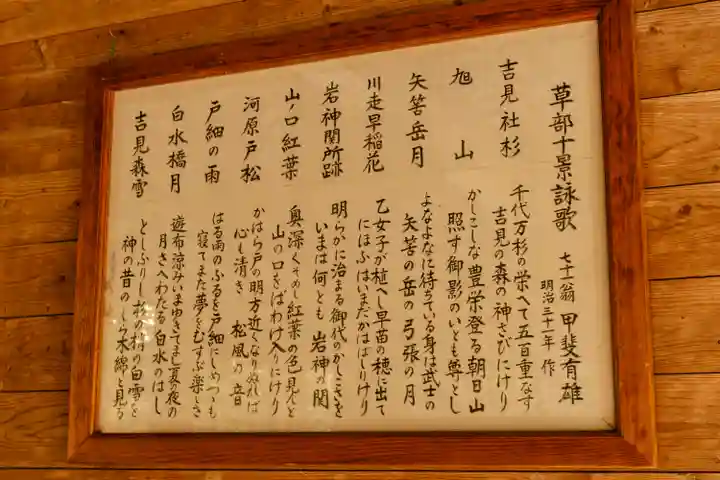 草部十景詠歌
七十一翁 甲斐有雄
明治三十一年 作
吉見社杉
千代万杉の栄へて五百重なす
吉見の森の神さびにけり
旭山
かしこしな豊栄登る朝日山
照す御影のいとも尊とし
矢筈岳月
よなよなに待ちている身は武士の
矢筈の岳の弓張の月
川走早稲花
乙女子が植へし早苗の穂に出て
にほふはいまだかははしりけり
岩神関所跡
明らかに治まる御代のかしこさを
いまは何とも 岩神の関
山ノ口紅葉
奥深くそめし紅葉の色見んと
山の口さばわけ入りにけり
河原戸松
かはら戸の明方近くなりぬれば
心も清き 松風の音
戸細の雨
はる雨のふるを戸細にしめつゝも
寝てまた夢をむすぶ楽しさ
白水橋月
遊布涼みいまゆきてまし夏の夜の
月さへわたる白水のはし
吉見森雪
としふりし杉の梢の白雪を
神の昔のしら木綿と見る